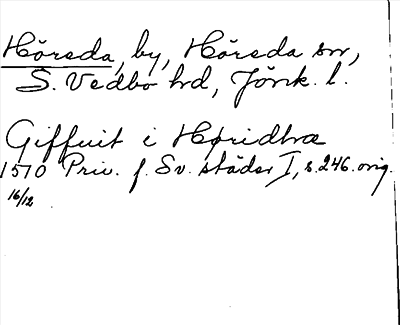 Hörsda, by, Hörsda sn,
S. Vedbo hd, Jönk. l.
Giffuit i Høridhra
1510 Priv. f. Sv. städer I, s. 246. orig.
16/12